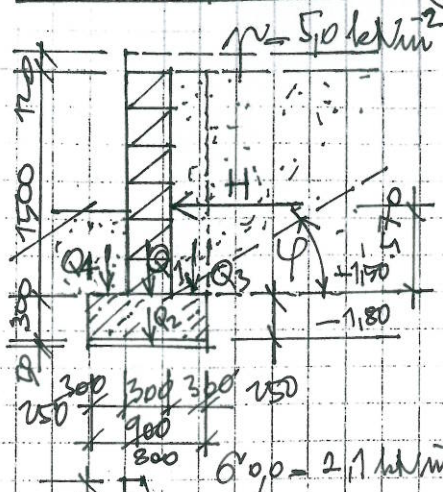 p = 5,0 kNm⁻²
120
1500
300
50
H
φ
570
Q4
Q1
Q3
Q2
-1,50
-1,80
300 300 300
250 250
900
800
σ0,0 = 2,1 kNm